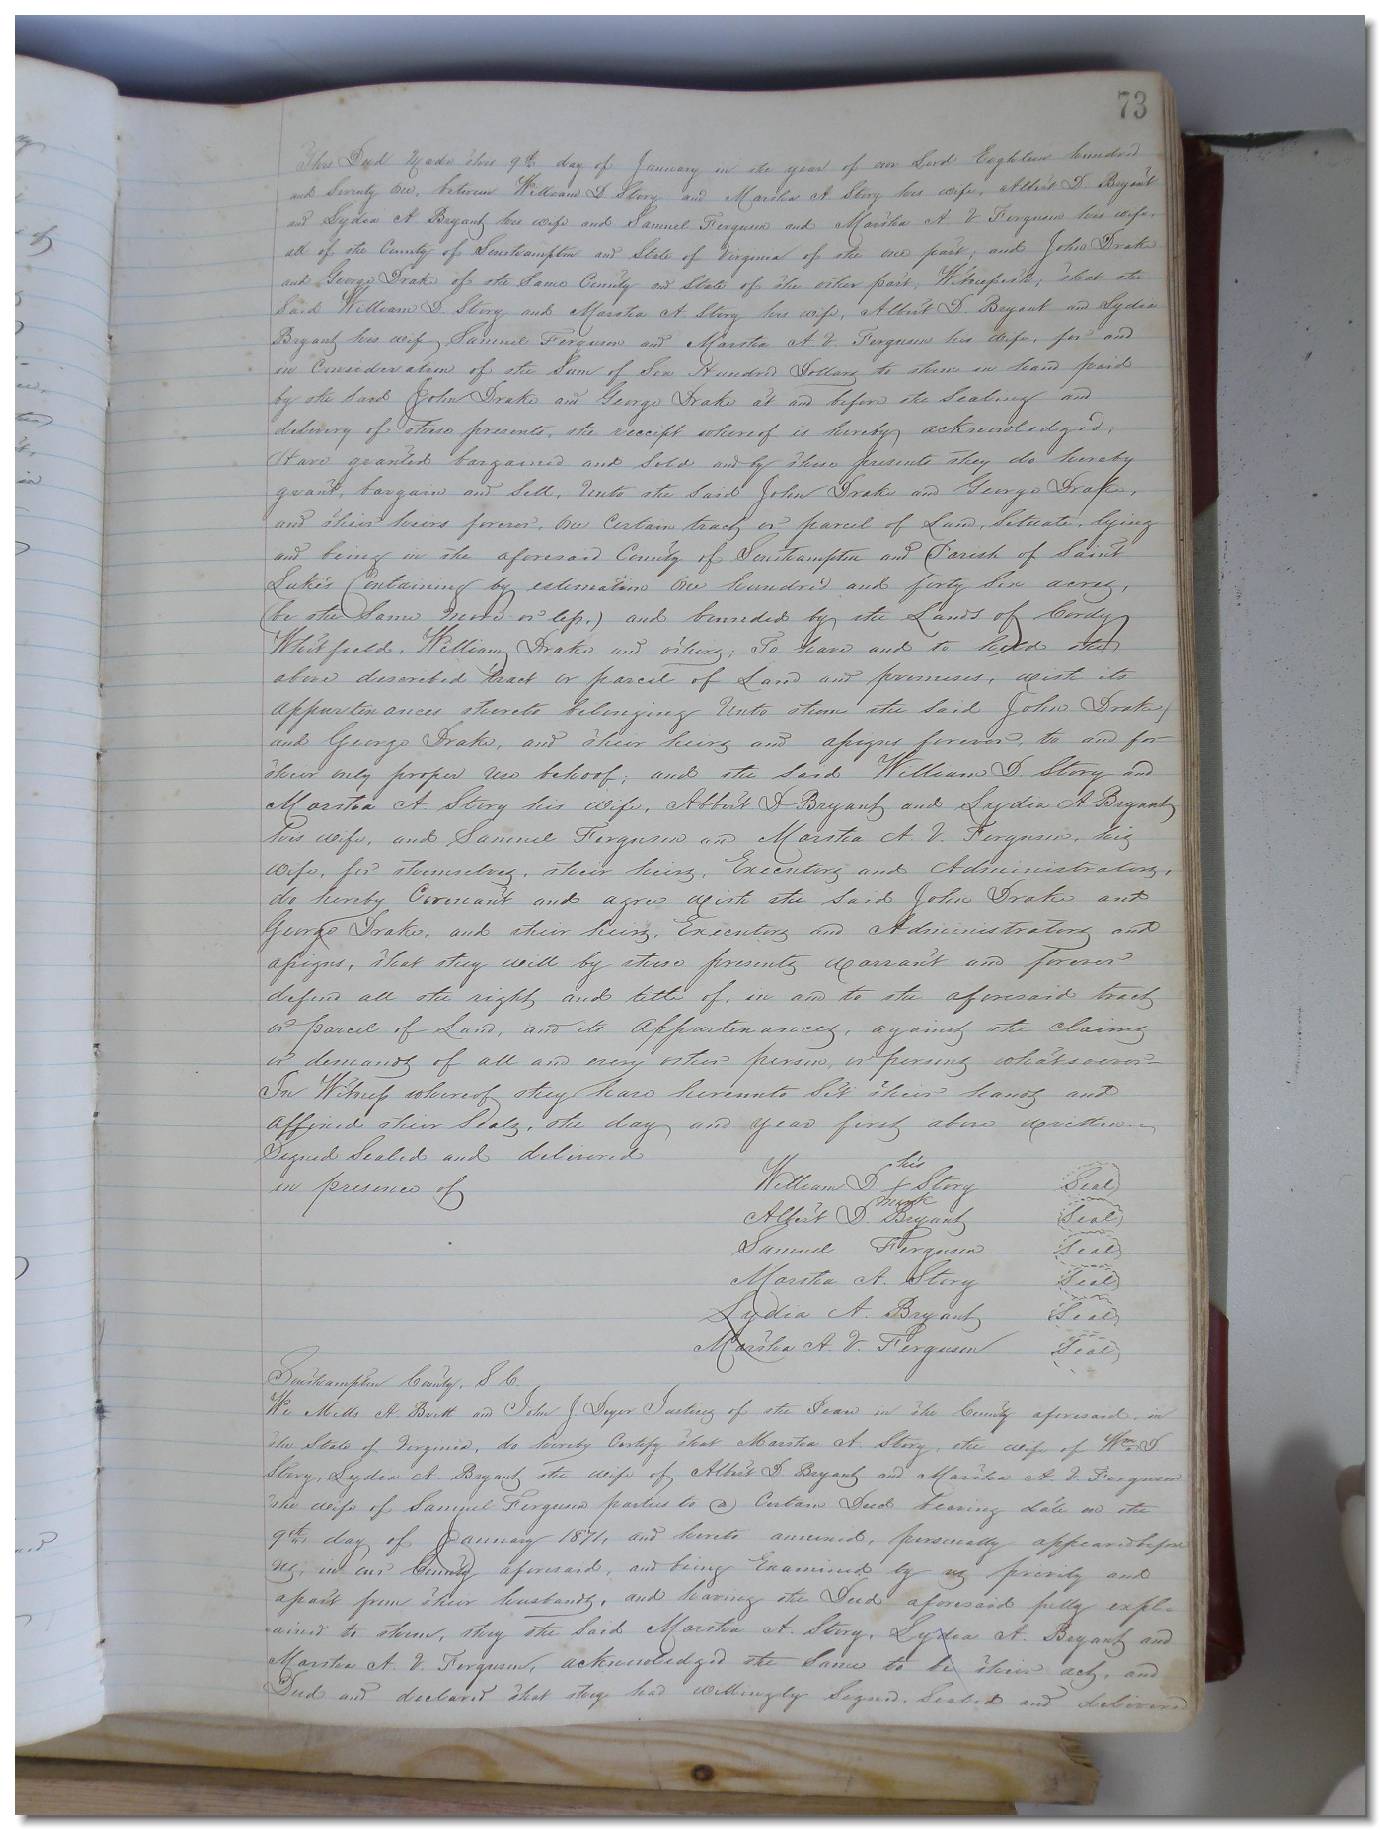 73
This Deed Made this 9th day of January in the year of our Lord Eighteen hundred
and Seventy One, between William D Story and Martha A Story his wife, Albert D. Bryant
and Lydia A Bryant his wife and Samuel Ferguson and Martha A V Ferguson his wife,
all of the County of Southampton and State of Virginia of the one part; and John Drake
and George Drake of the Same County and State of the other part, Witnesseth; that the
Said William D. Story and Martha A Story his wife, Albert D. Bryant and Lydia
Bryant his wife, Samuel Ferguson and Martha A. V. Ferguson his wife, for and
in Consideration of the Sum of Six Hundred Dollars to them in hand paid
by the Said John Drake and George Drake at and before the Sealing and
delivery of these presents, the receipt whereof is hereby acknowledged,
Have granted bargained and Sold and by these presents they do hereby
grant, bargain and Sell, Unto the Said John Drake and George Drake,
and their heirs forever, One Certain tract or parcel of Land, Situate, lying
and being in the aforesaid County of Southampton and Parish of Saint
Luke's Containing by estimation One hundred and forty Six acres,
(be the Same More or less,) and bounded by the Lands of Cordy
Whitfield, William Drake and others; To have and to hold the
above described tract or parcel of Land and premises, with its
appurtenances thereto belonging Unto them the Said John Drake,
and George Drake, and their heirs and assigns forever, to and for
their only proper Use behoof; and the Said William D. Story and
Martha A. Story his wife, Albert D Bryant and Lydia A Bryant
his wife, and Samuel Ferguson and Martha A. V. Ferguson, his
wife, for themselves, their heirs, Executors and Administrators,
do hereby Covenant and agree with the Said John Drake and
George Drake, and their heirs, Executors and Administrators and
assigns, that they will by these presents warrant and forever
defend all the right and title of, in and to the aforesaid tract
or parcel of Land, and its Appurtenances, against the claims
or demands of all and every other person, or persons whatsoever
In Witness whereof they have hereunto Set their hands and
affixed their Seals, the day and year first above written
Signed Sealed and delivered
in presence of
his
William D. X Story Seal
mark
Albert D. Bryant Seal
Samuel Ferguson Seal
Martha A. Story Seal
Lydia A. Bryant Seal
Martha A. V. Ferguson Seal
Southampton County, S C.
We Mills A. Britt and John J Deyer Justices of the Peace in the County aforesaid, in
the State of Virginia, do hereby Certify that Martha A. Story, the wife of Wm. D
Story, Lydia A. Bryant the wife of Albert D Bryant and Martha A. V. Ferguson
the wife of Samuel Ferguson parties to a Certain Deed bearing date on the
9th day of January 1871, and hereto annexed, personally appeared before
us, in our County aforesaid, and being Examined by us privily and
apart from their husbands, and having the Deed aforesaid fully expl-
ained to them, they the Said Martha A. Story, Lydia A. Bryant and
Martha A. V. Ferguson, acknowledged the Same to be their act, and
Deed and declared that they had willingly Signed, Sealed and delivered